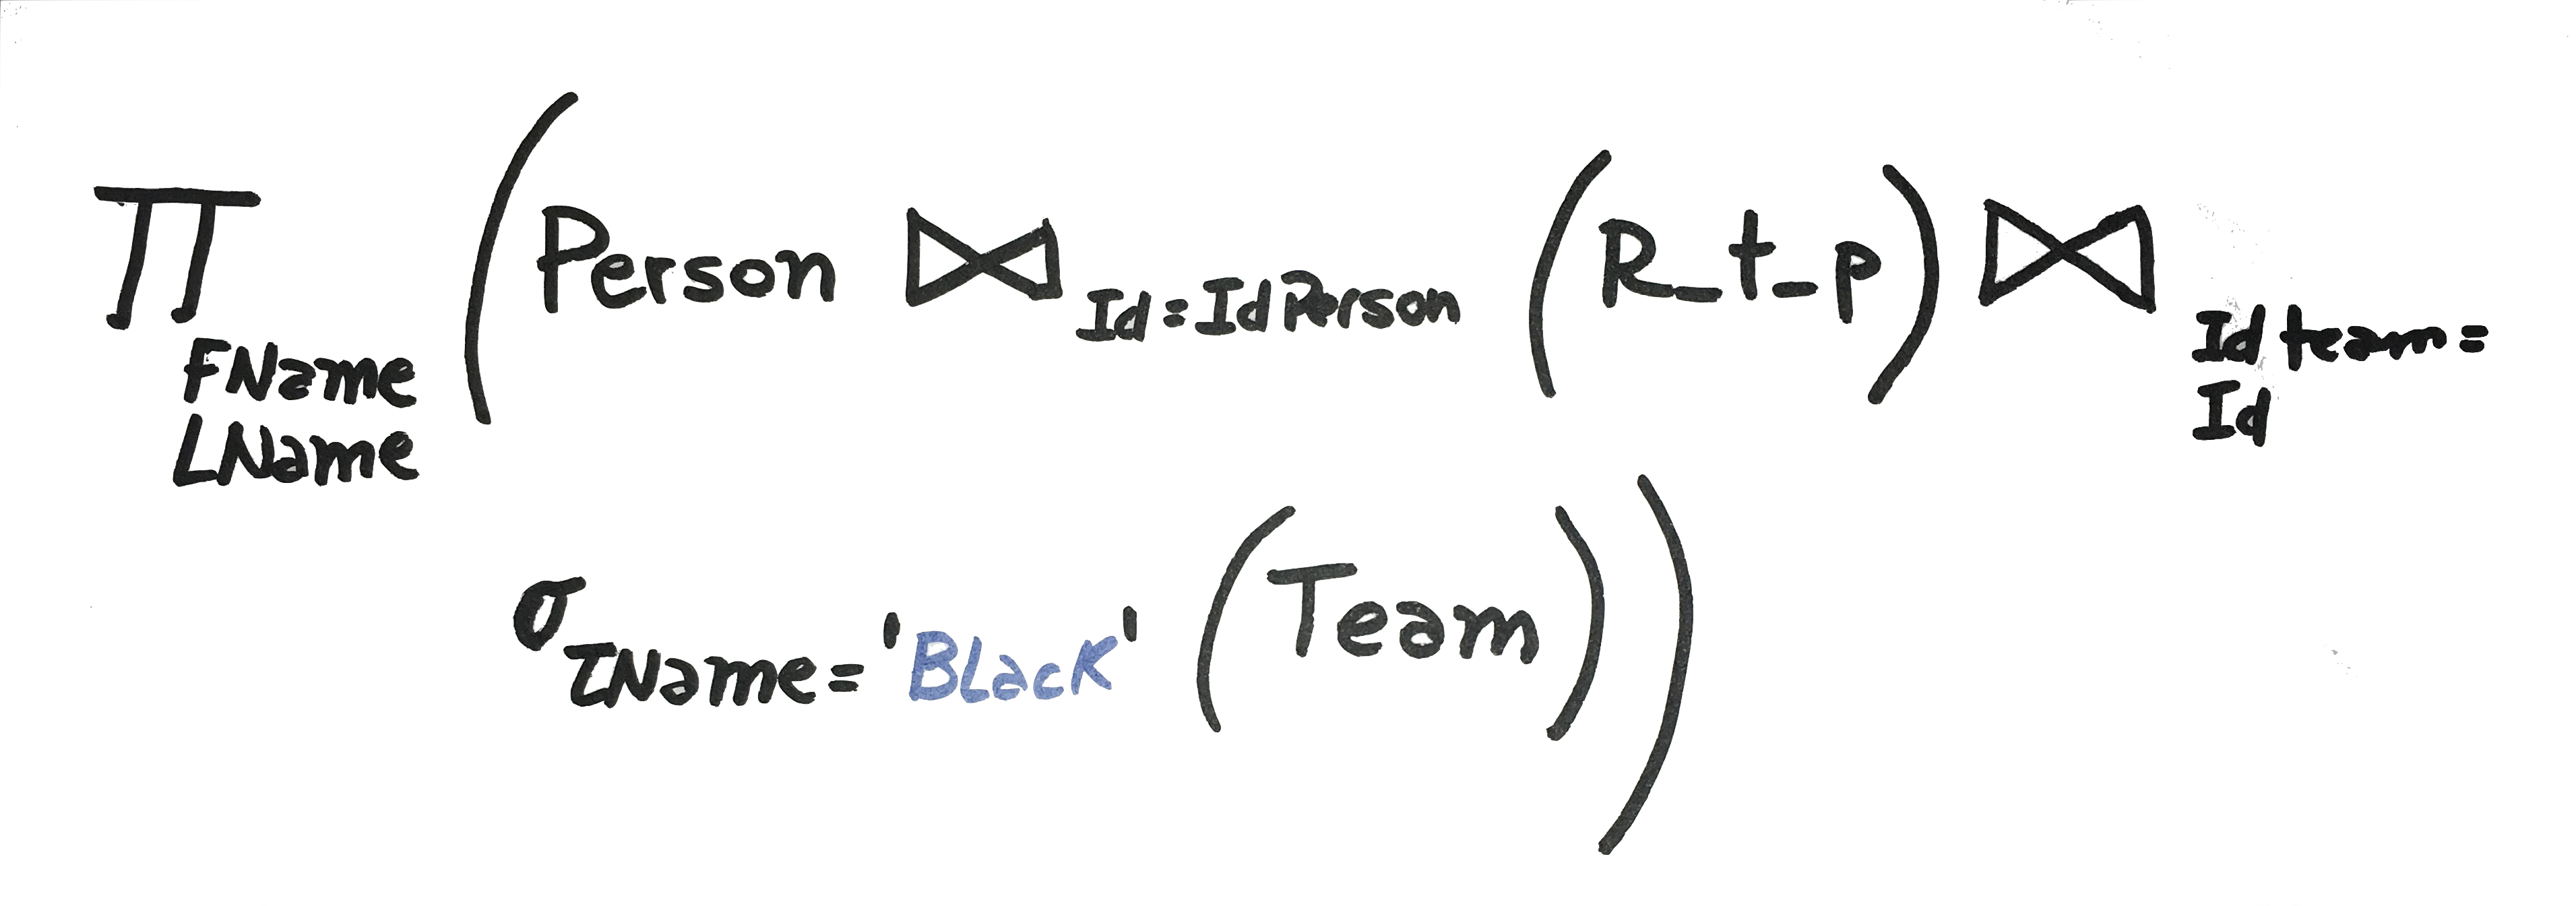 ∏ FName LName ( Person ⋈ Id=IdPerson (R_t_p) ⋈ Idteam= Id
σ TName='BLacK' (Team) )